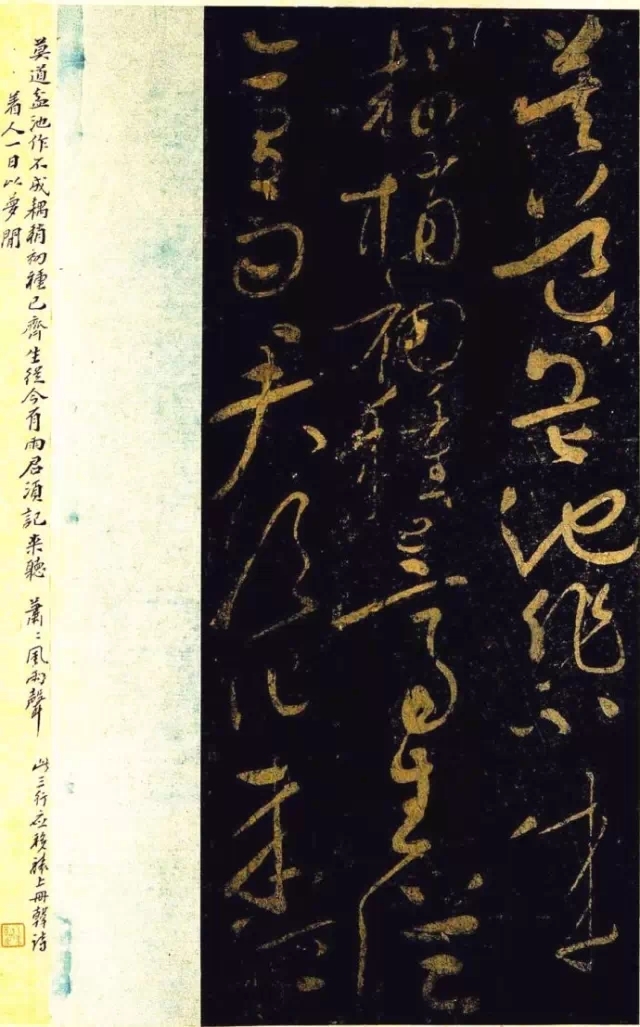 莫道盆池作不成
耦梢初種已齊生從
今有雨君須記来聽
莫道盆池作不成耦稍初種已齊生從今有雨君須記来聽 蕭〻風雨聲 此三行應移裱上冊韓詩
着人一日以夢間